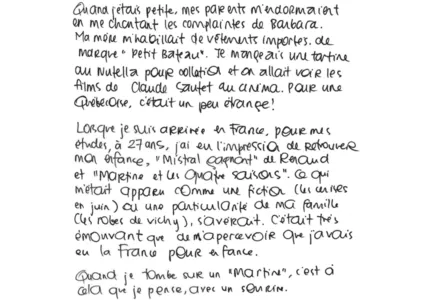 Quand j'étais petite, mes parents m'endormaient
en me chantant les complaintes de Barbara.
Ma mère m'habillait de vêtements importés. de
marque "Petit Bateau". Je mangeais une tartine
au Nutella pour collation et on allait voir les
films de Claude Sautet au cinéma. Pour une
Québécoise, c'était un peu étrange!
Lorsque je suis arrivée en France, pour mes
études, à 27 ans, j'ai eu l'impression de retrouver
mon enfance, "Mistral gagnant" de Renaud
et "Martine et les Quatre saisons". Ce qui
m'était apparu comme une fiction (les cerises
en juin) ou une particularité de ma famille
(les robes de vichy), s'avérait. C'était très
émouvant que de m'apercevoir que j'avais
eu la France pour enfance.
Quand je tombe sur un "Martine", c'est à
cela que je pense, avec un sourire.